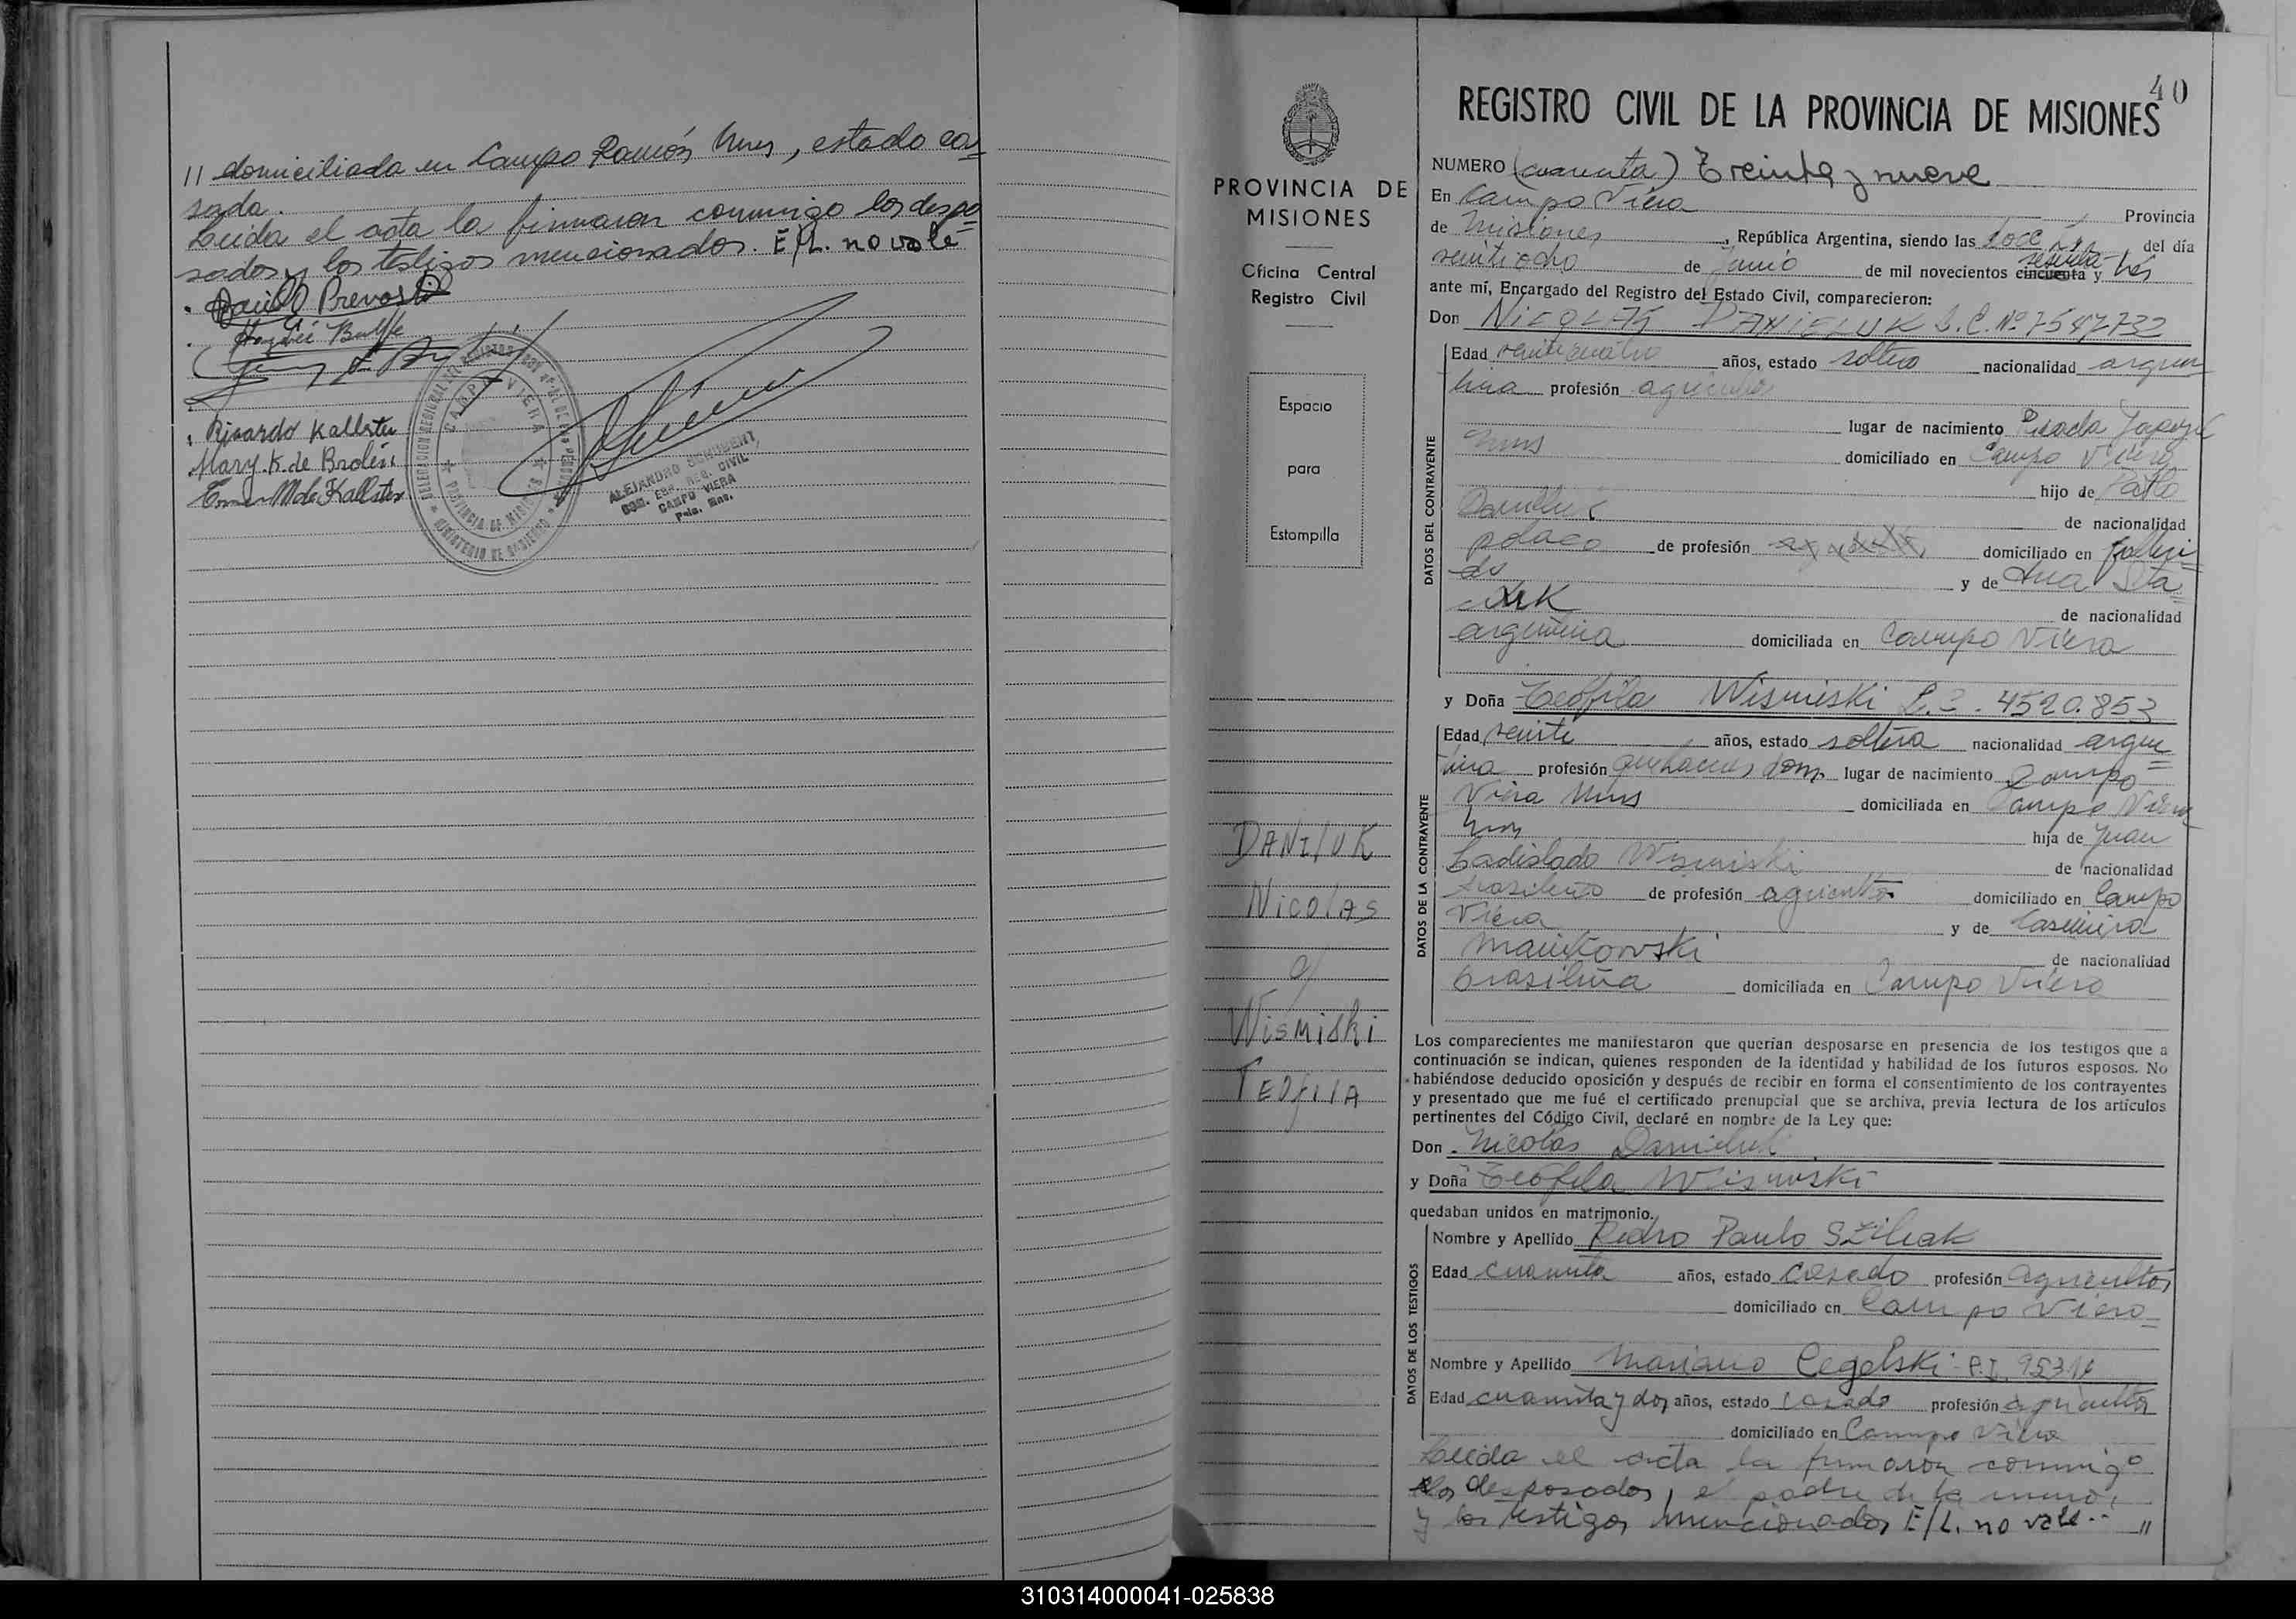 // domiciliada en Campo Ramón Mnes, estado ca=
sada.
Leida el acta la firmaron conmigo los despo=
sados y los testigos mencionados. E/L. no vale
Ricardo Kallsten
Mary. K. de Brolin
DELEGACION REGISTRO CIVIL
CAMPO VIERA
PROVINCIA DE MISIONES
MINISTERIO DE GOBIERNO
ALEJANDRO
REG. CIVIL
CAMPO VIERA
Pcia. Mns.
40
REGISTRO CIVIL DE LA PROVINCIA DE MISIONES
PROVINCIA DE
MISIONES
Oficina Central
Registro Civil
Espacio
para
Estampilla
DANILUK
Nicolas
c/
Wismiski
Teofila
NUMERO (cuarenta) Treinta y nueve
En Campo Viera Provincia
de Misiones, República Argentina, siendo las doce del día
veintiocho de junio de mil novecientos cincuenta sesenta y tres
ante mí, Encargado del Registro del Estado Civil, comparecieron:
Don NICOLAS DANIELUK L.C. Nº 7542732
DATOS DEL CONTRAYENTE
Edad veinticuatro años, estado soltero nacionalidad argen
tina profesión agricultor
lugar de nacimiento Picada Yapeyú
Mnes domiciliado en Campo Viera
hijo de Pablo
Daniluk de nacionalidad
polaco de profesión domiciliado en falleci=
do y de Ana
de nacionalidad
argentina domiciliada en Campo Viera
y Doña Teofila Wisnieski L.C. 4520.853
DATOS DE LA CONTRAYENTE
Edad veinte años, estado soltera nacionalidad argen=
tina profesión quehaceres dom. lugar de nacimiento Campo
Viera Mnes domiciliada en Campo Viera
Mnes hija de Juan
Ladislado Wisniski de nacionalidad
brasileño de profesión agricultor domiciliado en Campo
Viera y de Casimira
Manikowski de nacionalidad
brasileña domiciliada en Campo Viera
Los comparecientes me manifestaron que querían desposarse en presencia de los testigos que a
continuación se indican, quienes responden de la identidad y habilidad de los futuros esposos. No
habiéndose deducido oposición y después de recibir en forma el consentimiento de los contrayentes
y presentado que me fué el certificado prenupcial que se archiva, previa lectura de los artículos
pertinentes del Código Civil, declaré en nombre de la Ley que:
Don Nicolas Danieluk
y Doña Teofila Wisnuski
quedaban unidos en matrimonio.
DATOS DE LOS TESTIGOS
Nombre y Apellido Pedro Paulo
Edad cuarenta años, estado casado profesión agricultor
domiciliado en Campo Viera
Nombre y Apellido Mariano Cegelski
Edad cuarenta y dos años, estado casado profesión agricultor
domiciliado en Campo Viera
Leida el acta la firmaron conmigo
los desposados, el padre de la menor,
y los testigos mencionados E/L. no vale.. //
310314000041-025838